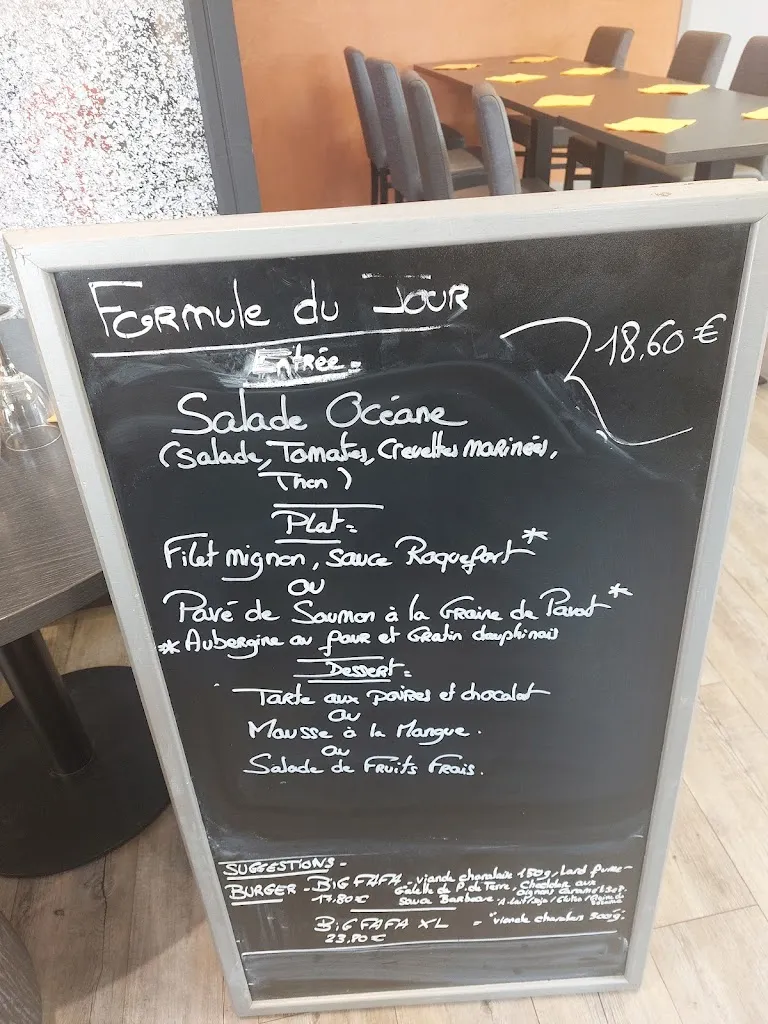 Formule du Jour
18,60 €
Entrée
Salade Océane
(Salade, Tomates, Crevettes marinées,
Thon)
Plat
Filet mignon, sauce Roquefort *
ou
Pavé de Saumon à la Graine de Pavot *
* Aubergine au four et Gratin dauphinois
Dessert
Tarte aux poires et chocolat
ou
Mousse à la Mangue.
ou
Salade de Fruits Frais.
SUGGESTIONS -
BURGER - BIG FAFA - viande charolais 180g, Lard fumé -
Galette de P. de Terre, Cheddar aux
oignons
17.80€ Sauce Barbecue
BIG FAFA XL - "viande charolais 300g.
23,80€